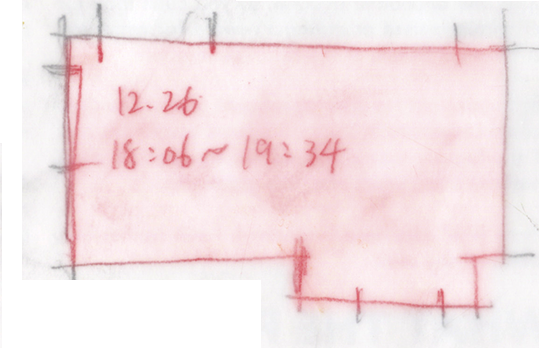 12.26
18:06~19:34